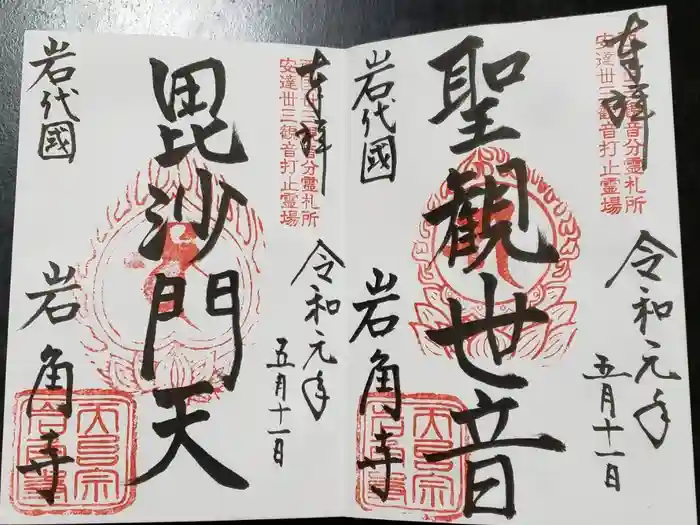 奉拝
安達卅三観音打止霊場
令和元年
五月十一日
聖観世音
岩代國
岩角寺
奉拝
安達卅三観音打止霊場
令和元年
五月十一日
毘沙門天
岩代國
岩角寺